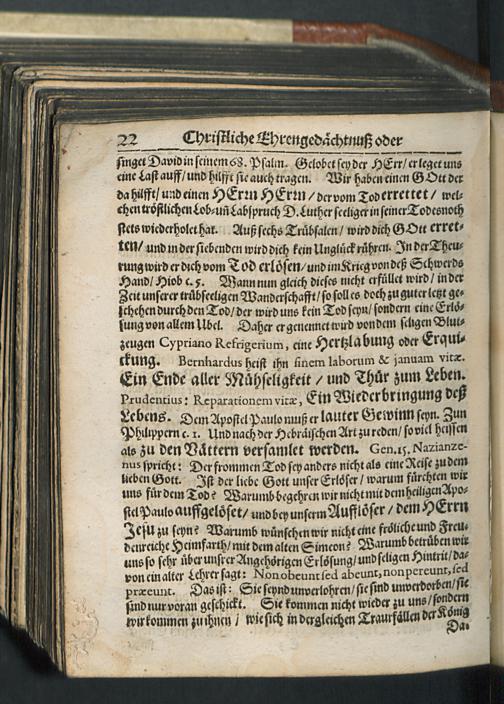 22 Christliche Ehrengedächtnuß oder
singet David in seinem 68. Psalm. Gelobet sey der HErr/ er leget uns
eine Last auff/ und hilfft sie auch tragen. Wir haben einen GOtt der
da hilfft/ und einen HErrn HErrn/ der vom Tod errettet/ wel-
chen tröstlichen Lob-uñ Labspruch D. Luther seeliger in seiner Todesnoth
stets wiederholet hat. Auß sechs Trübsalen/ wird dich GOtt erret-
ten/ und in der siebenden wird dich kein Unglück rühren. In der Theu-
rung wird er dich vom Tod erlösen/ und im Krieg von deß Schwerds
Hand/ Hiob c. 5. Wann nun gleich dieses nicht erfüllet wird/ in der
Zeit unserer trübseeligen Wanderschafft/ so soll es doch zu guter letzt ge-
schehen durch den Tod/ der wird uns kein Tod seyn/ sondern eine Erlö-
sung von allem Ubel. Daher er genennet wird von dem seligen Blut-
zeugen Cypriano Refrigerium, eine Hertzlabung oder Erqui-
ckung. Bernhardus heist ihn finem laborum & januam vitæ.
Ein Ende aller Mühseligkeit/ und Thür zum Leben.
Prudentius: Reparationem vitæ, Ein Wiederbringung deß
Lebens. Dem Apostel Paulo muß er lauter Gewinn seyn. Zun
Philippern c. 1. Und nach der Hebräischen Art zu reden/ so viel heissen
als zu den Vättern versamlet werden. Gen. 15. Nazianze-
nus spricht: Der frommen Tod sey anders nicht als eine Reise zu dem
lieben Gott. Ist der liebe Gott unser Erlöser/ warum fürchten wir
uns für dem Tod? Warumb begehren wir nicht mit dem heiligen Apo-
stel Paulo auffgelöset/ und bey unserm Aufflöser/ dem HErrn
Jesu zu seyn? Warumb wünschen wir nicht eine fröliche und Freu-
denreiche Heimfarth/ mit dem alten Simeon? Warumb betrüben wir
uns so sehr über unser Angehörigen Erlösung/ und seligen Hintrit/ da-
von ein alter Lehrer sagt: Non obeunt sed abeunt, non pereunt, sed
præeunt. Das ist: Sie seynd unverlohren/ sie sind unverdorben/ sie
sind nur voran geschickt. Sie kommen nicht wieder zu uns/ sondern
wir kommen zu ihnen/ wie sich in dergleichen Traurfällen der König
Da-